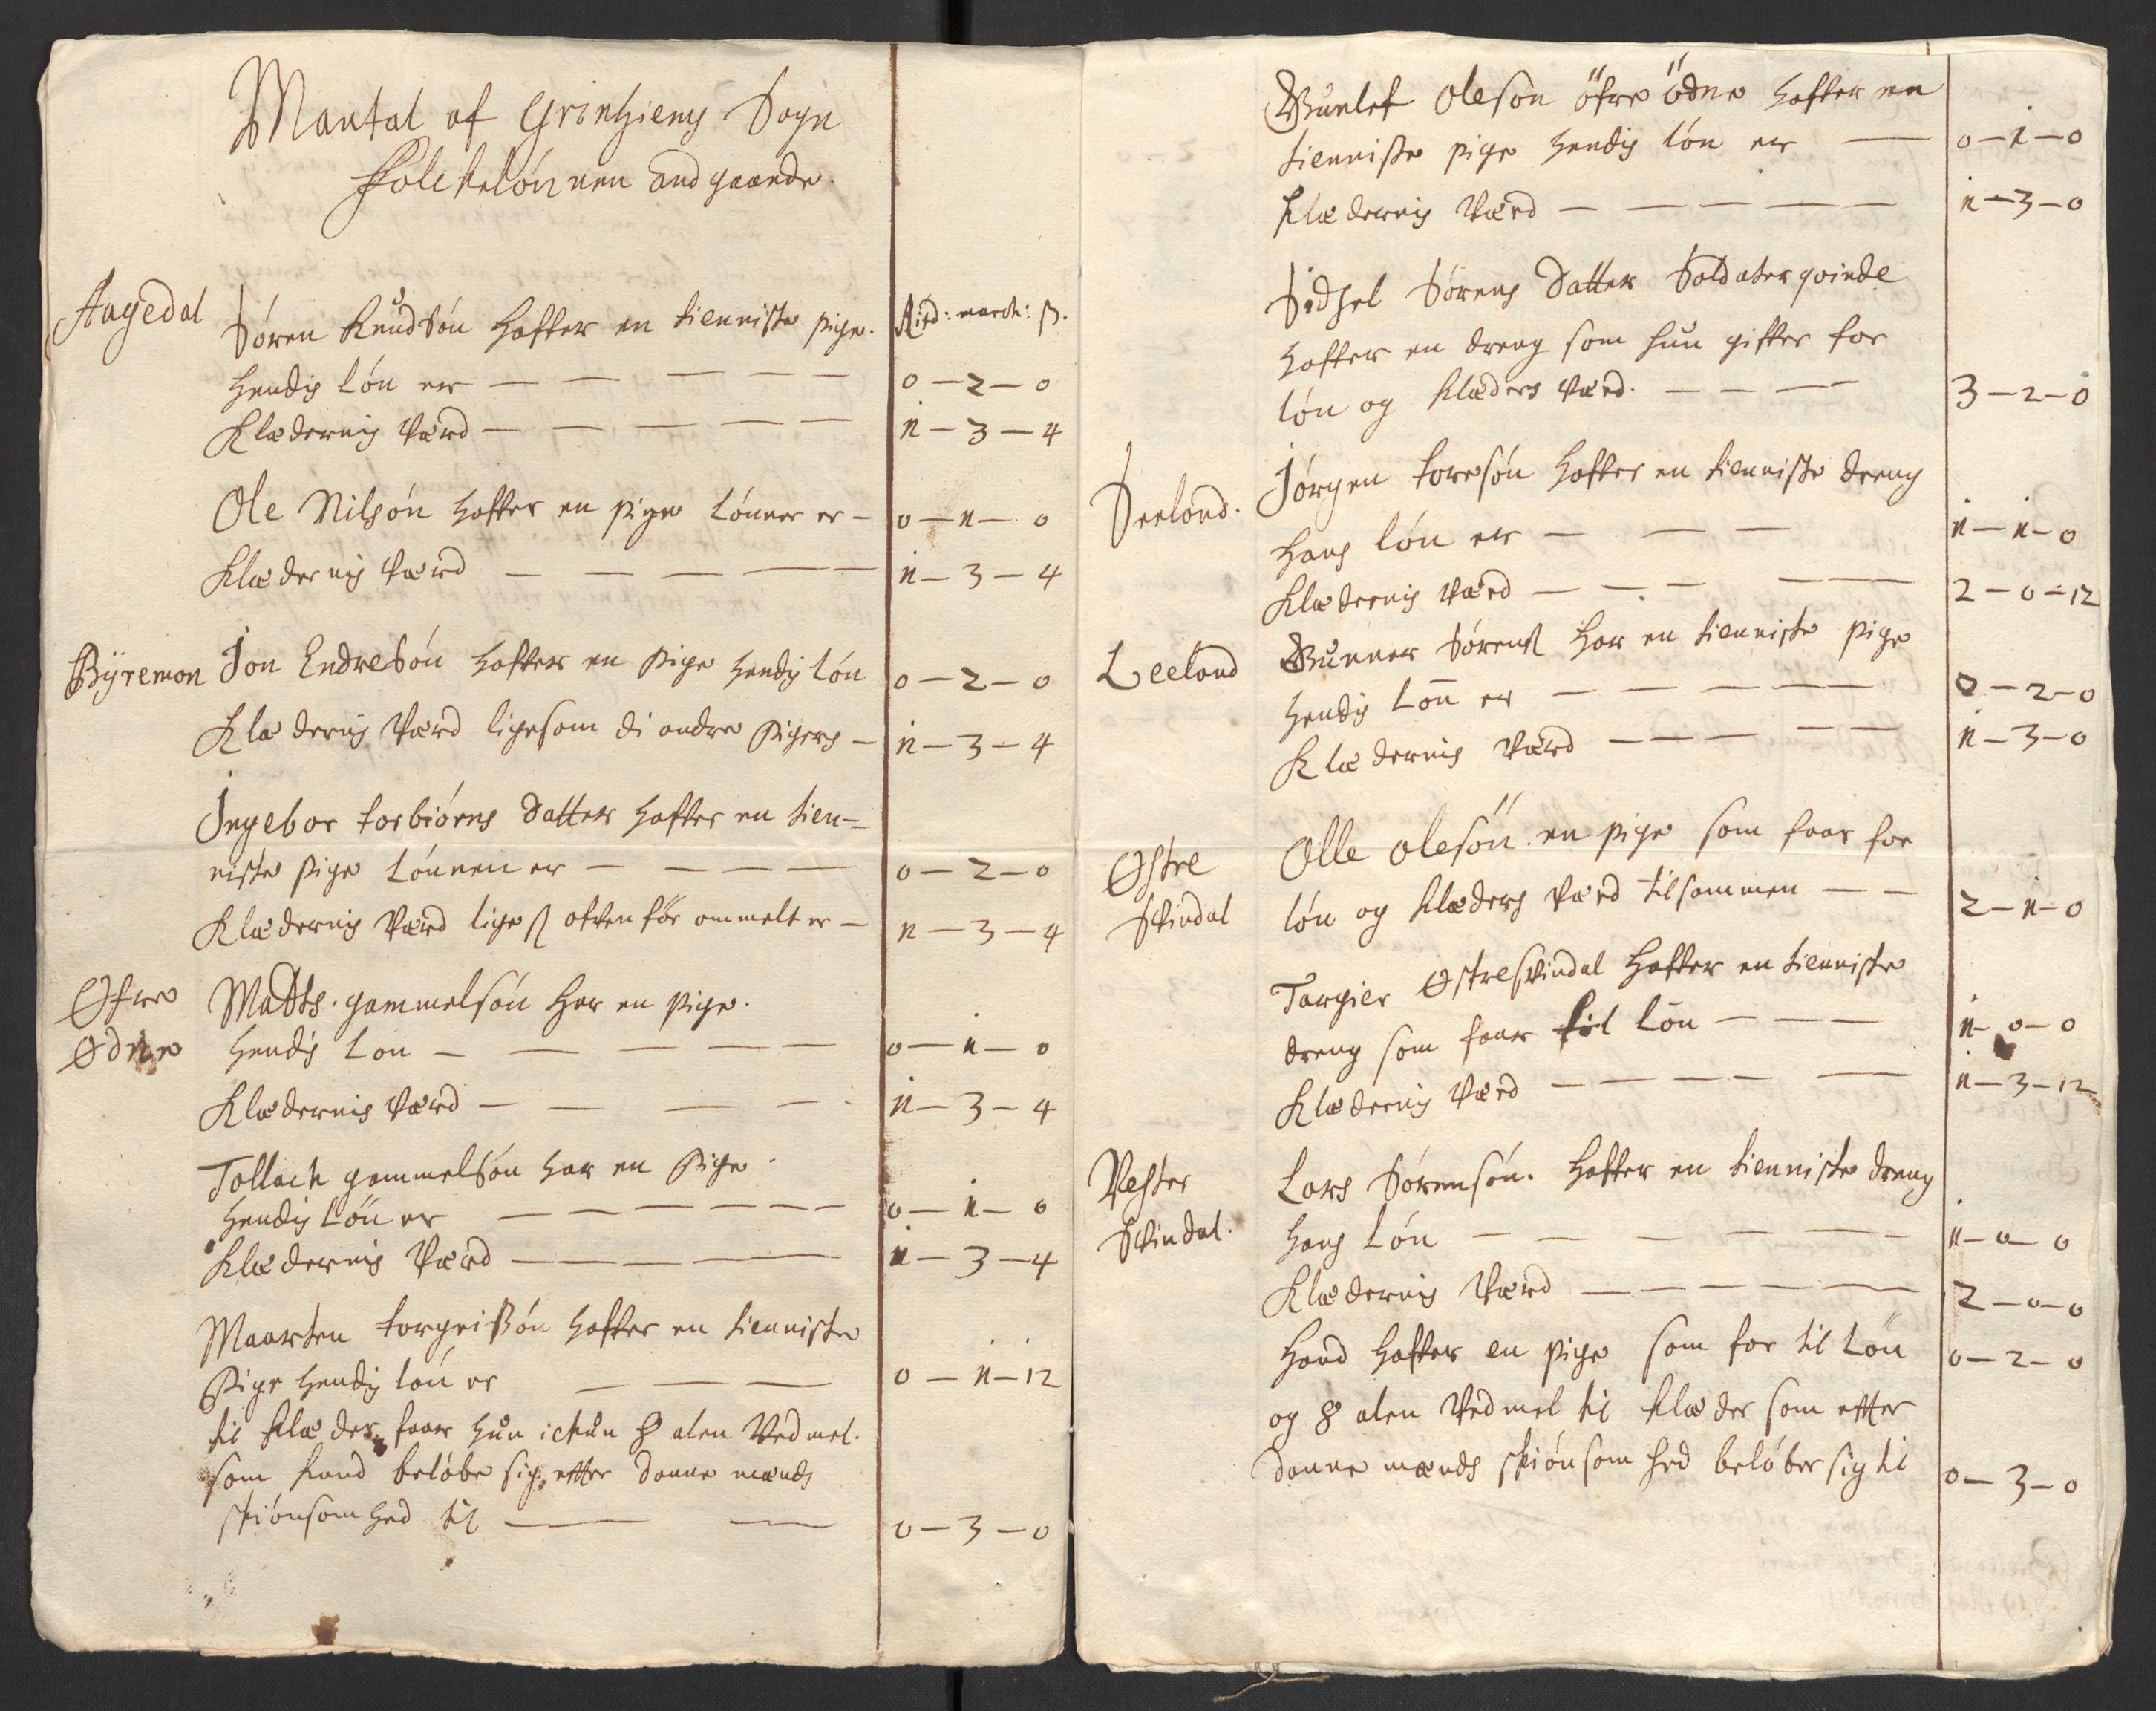 Mantal af Grinhiems Sogn
Folckelónnen and gaaende.
Rixd: march: ß.
Aagedal Sóren Knudsón hafter en tienniste pige.
hendis lón er — — — — — 0 — 2 — 0
Klædernis Værd — — — — — n — 3 — 4
Ole Nilsón hafter en pige Lónner er — 0 — n — 0
Klædernis Værd — — — — — n — 3 — 4
Bÿremon Jon Endresón hafter en Pige hendis lón 0 — 2 — 0
Klædernis Værd ligesom di andre Pigers — n — 3 — 4
Ingebor torbiórns datter hafter en tien=
niste pige Lónnen er — — — — 0 — 2 — 0
Klædernis Værd lige ſ ofven fór ommelt er — n — 3 — 4
Øfre Ødne Matths. gammelsón har en pige.
hendis Lon — — — — — 0 — n — 0
Klædernis Værd — — — — n — 3 — 4
Tollach gammelsón har en Pige.
hendis Lón er — — — — — — 0 — n — 0
Klædernis Værd — — — — — n — 3 — 4
Maarten torgeisón hafter en tienniste
Pige hendis lón er — — — 0 — n — 12
til klæder faar hun ickun 8 alen Vedmel.
som kand belóbe sig, etter danne mænds
skiónsomhed til — — 0 — 3 — 0
Gunlef Olesón öfre ödne hafter en
tienniste pige hendis lón er — 0 — n — 0
Klædernis Værd — — — — — n — 3 — 0
Sidsel Sórens datter Soldater qvinde
hafter en dreng som hun gifter for
lón og klæders Værd. — — — — 3 — 2 — 0
Seeland. Jórgen toresón hafter en tienniste dreng
hans lón er — — — n — n — 0
Klædernis Værd — — — — — — 2 — 0 — 12
Leeland Gunner Sórens har en tienniste pige
hendis Lón er — — — — — 0 — 2 — 0
Klædernis Værd — — — — — n — 3 — 0
Østre Svindal Olle olesón. en pige som faar for
lón og klæders Værd tilsammen — — 2 — n — 0
Targier Østresvindal hafter en tienniste
dreng som faar til lón — — — n — 0 — 0
Klædernis Værd — — — — — — n — 3 — 12
Vester Svindal. Lars Sórensón. hafter en tienniste dreng
hans Lón — — — — — — n — 0 — 0
Klædernis Værd — — — — — 2 — 0 — 0
Hand hafter en pige som for til Lón 0 — 2 — 0
og 8 alen Vedmel til klæder som etter
danne mænds skiónsomhed belóber sig til 0 — 3 — 0